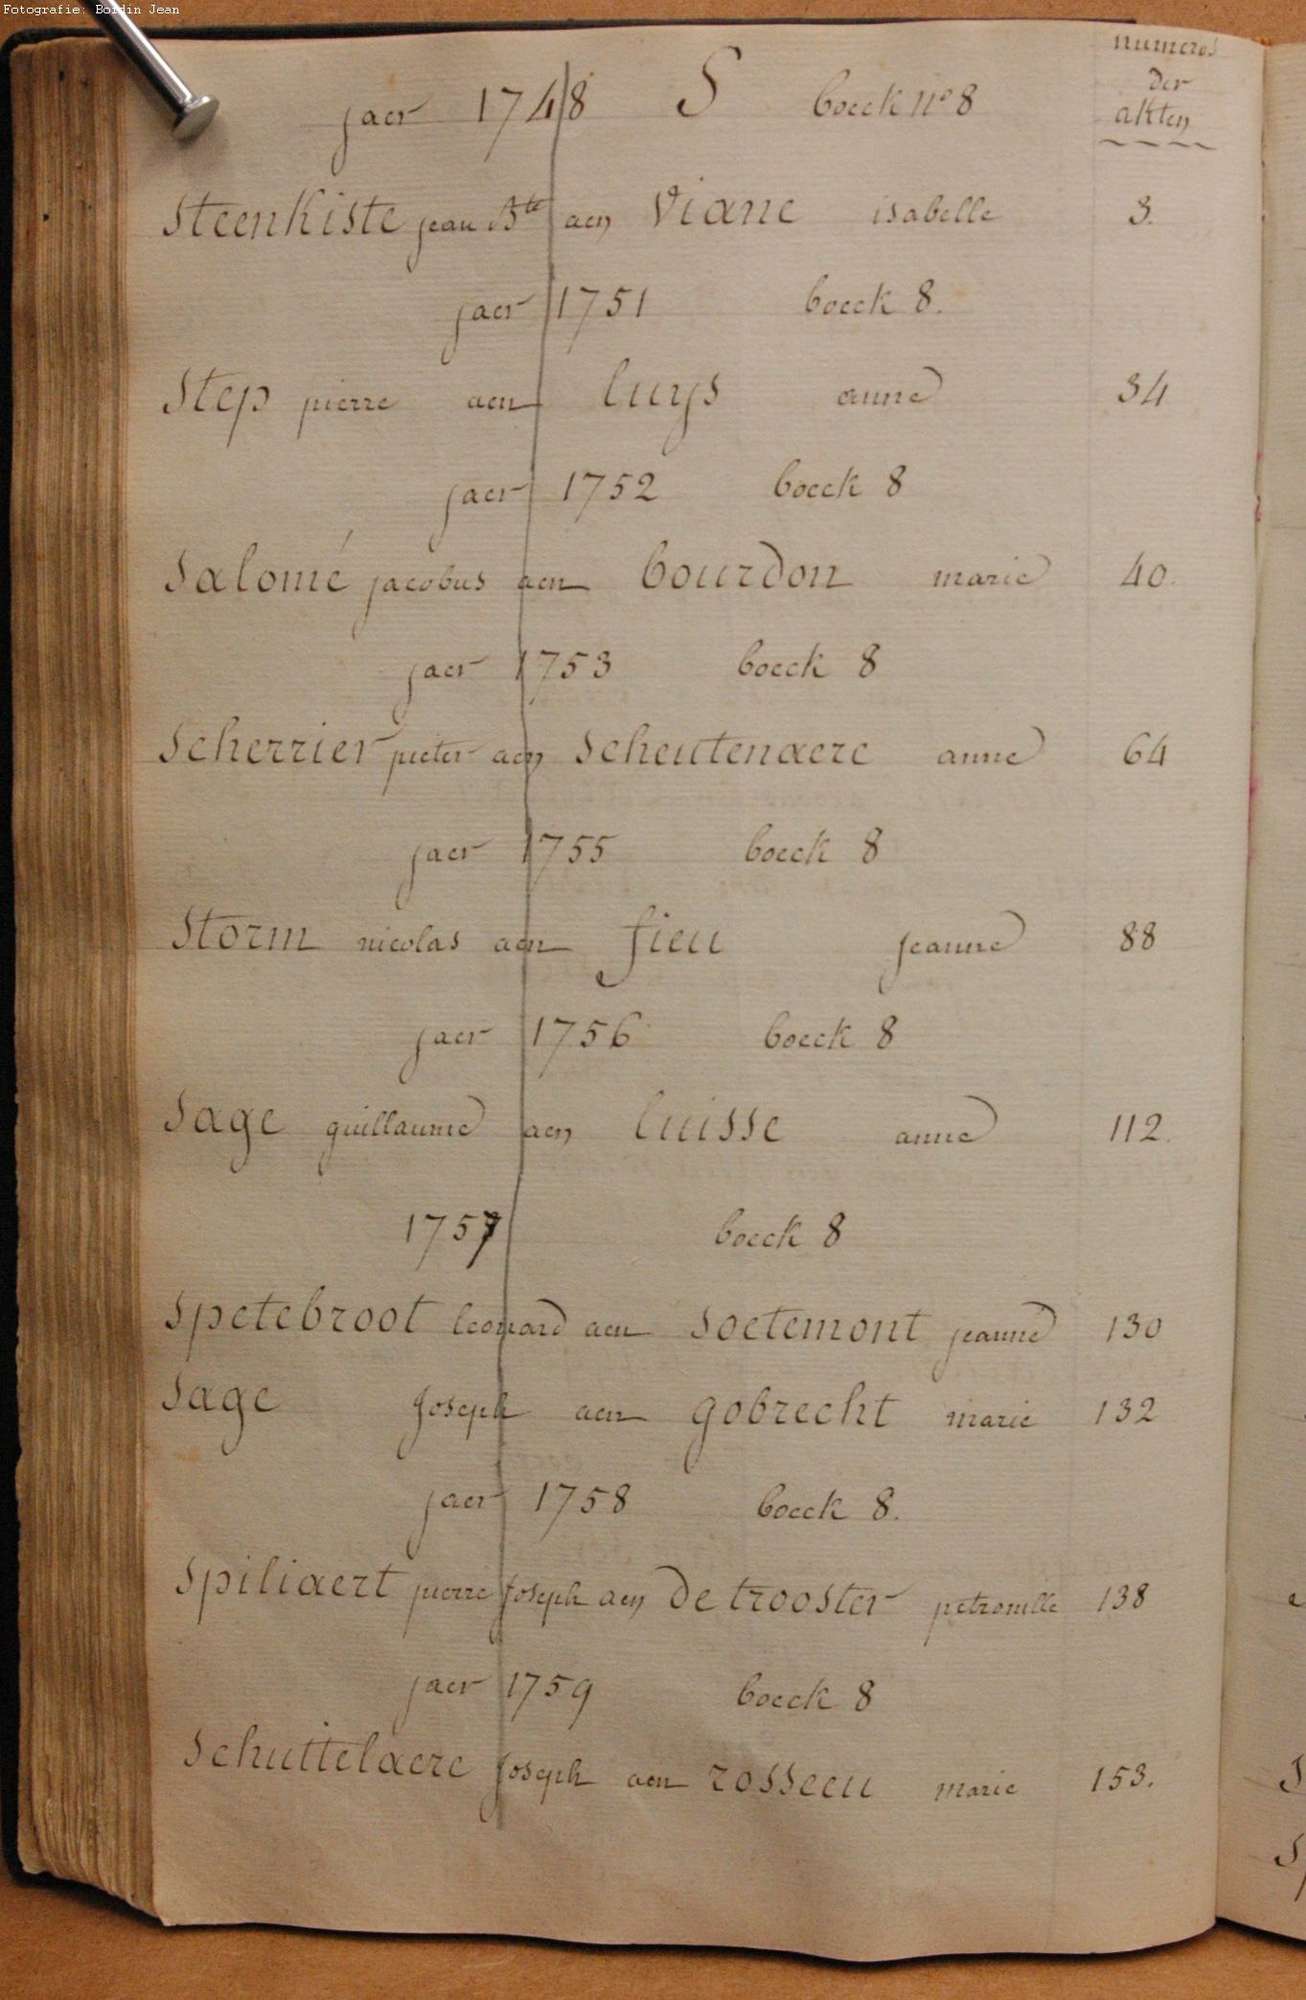 Fotografie: Boidin Jean
numeros
der
akten
jaer 1748 S boeck n° 8
Steenkiste jean Bte aen Viane isabelle 3.
jaer 1751 boeck 8.
Step pierre aen luys anne 34
jaer 1752 boeck 8
Salomé jacobus aen bourdon marie 40.
jaer 1753 boeck 8
Scherrier pieter aen Scheutenaere anne 64
jaer 1755 boeck 8
Storm nicolas aen fieu jeanne 88
jaer 1756 boeck 8
Sage guillaume aen luisse anne 112.
1757 boeck 8
Spetebroot leonard aen Soetemont jeanne 130
Sage Joseph aen gobrecht marie 132
jaer 1758 boeck 8.
Spiliaert pierre Joseph aen De trooster petronille 138
jaer 1759 boeck 8
Schuttelaere Joseph aen rosseeu marie 153.